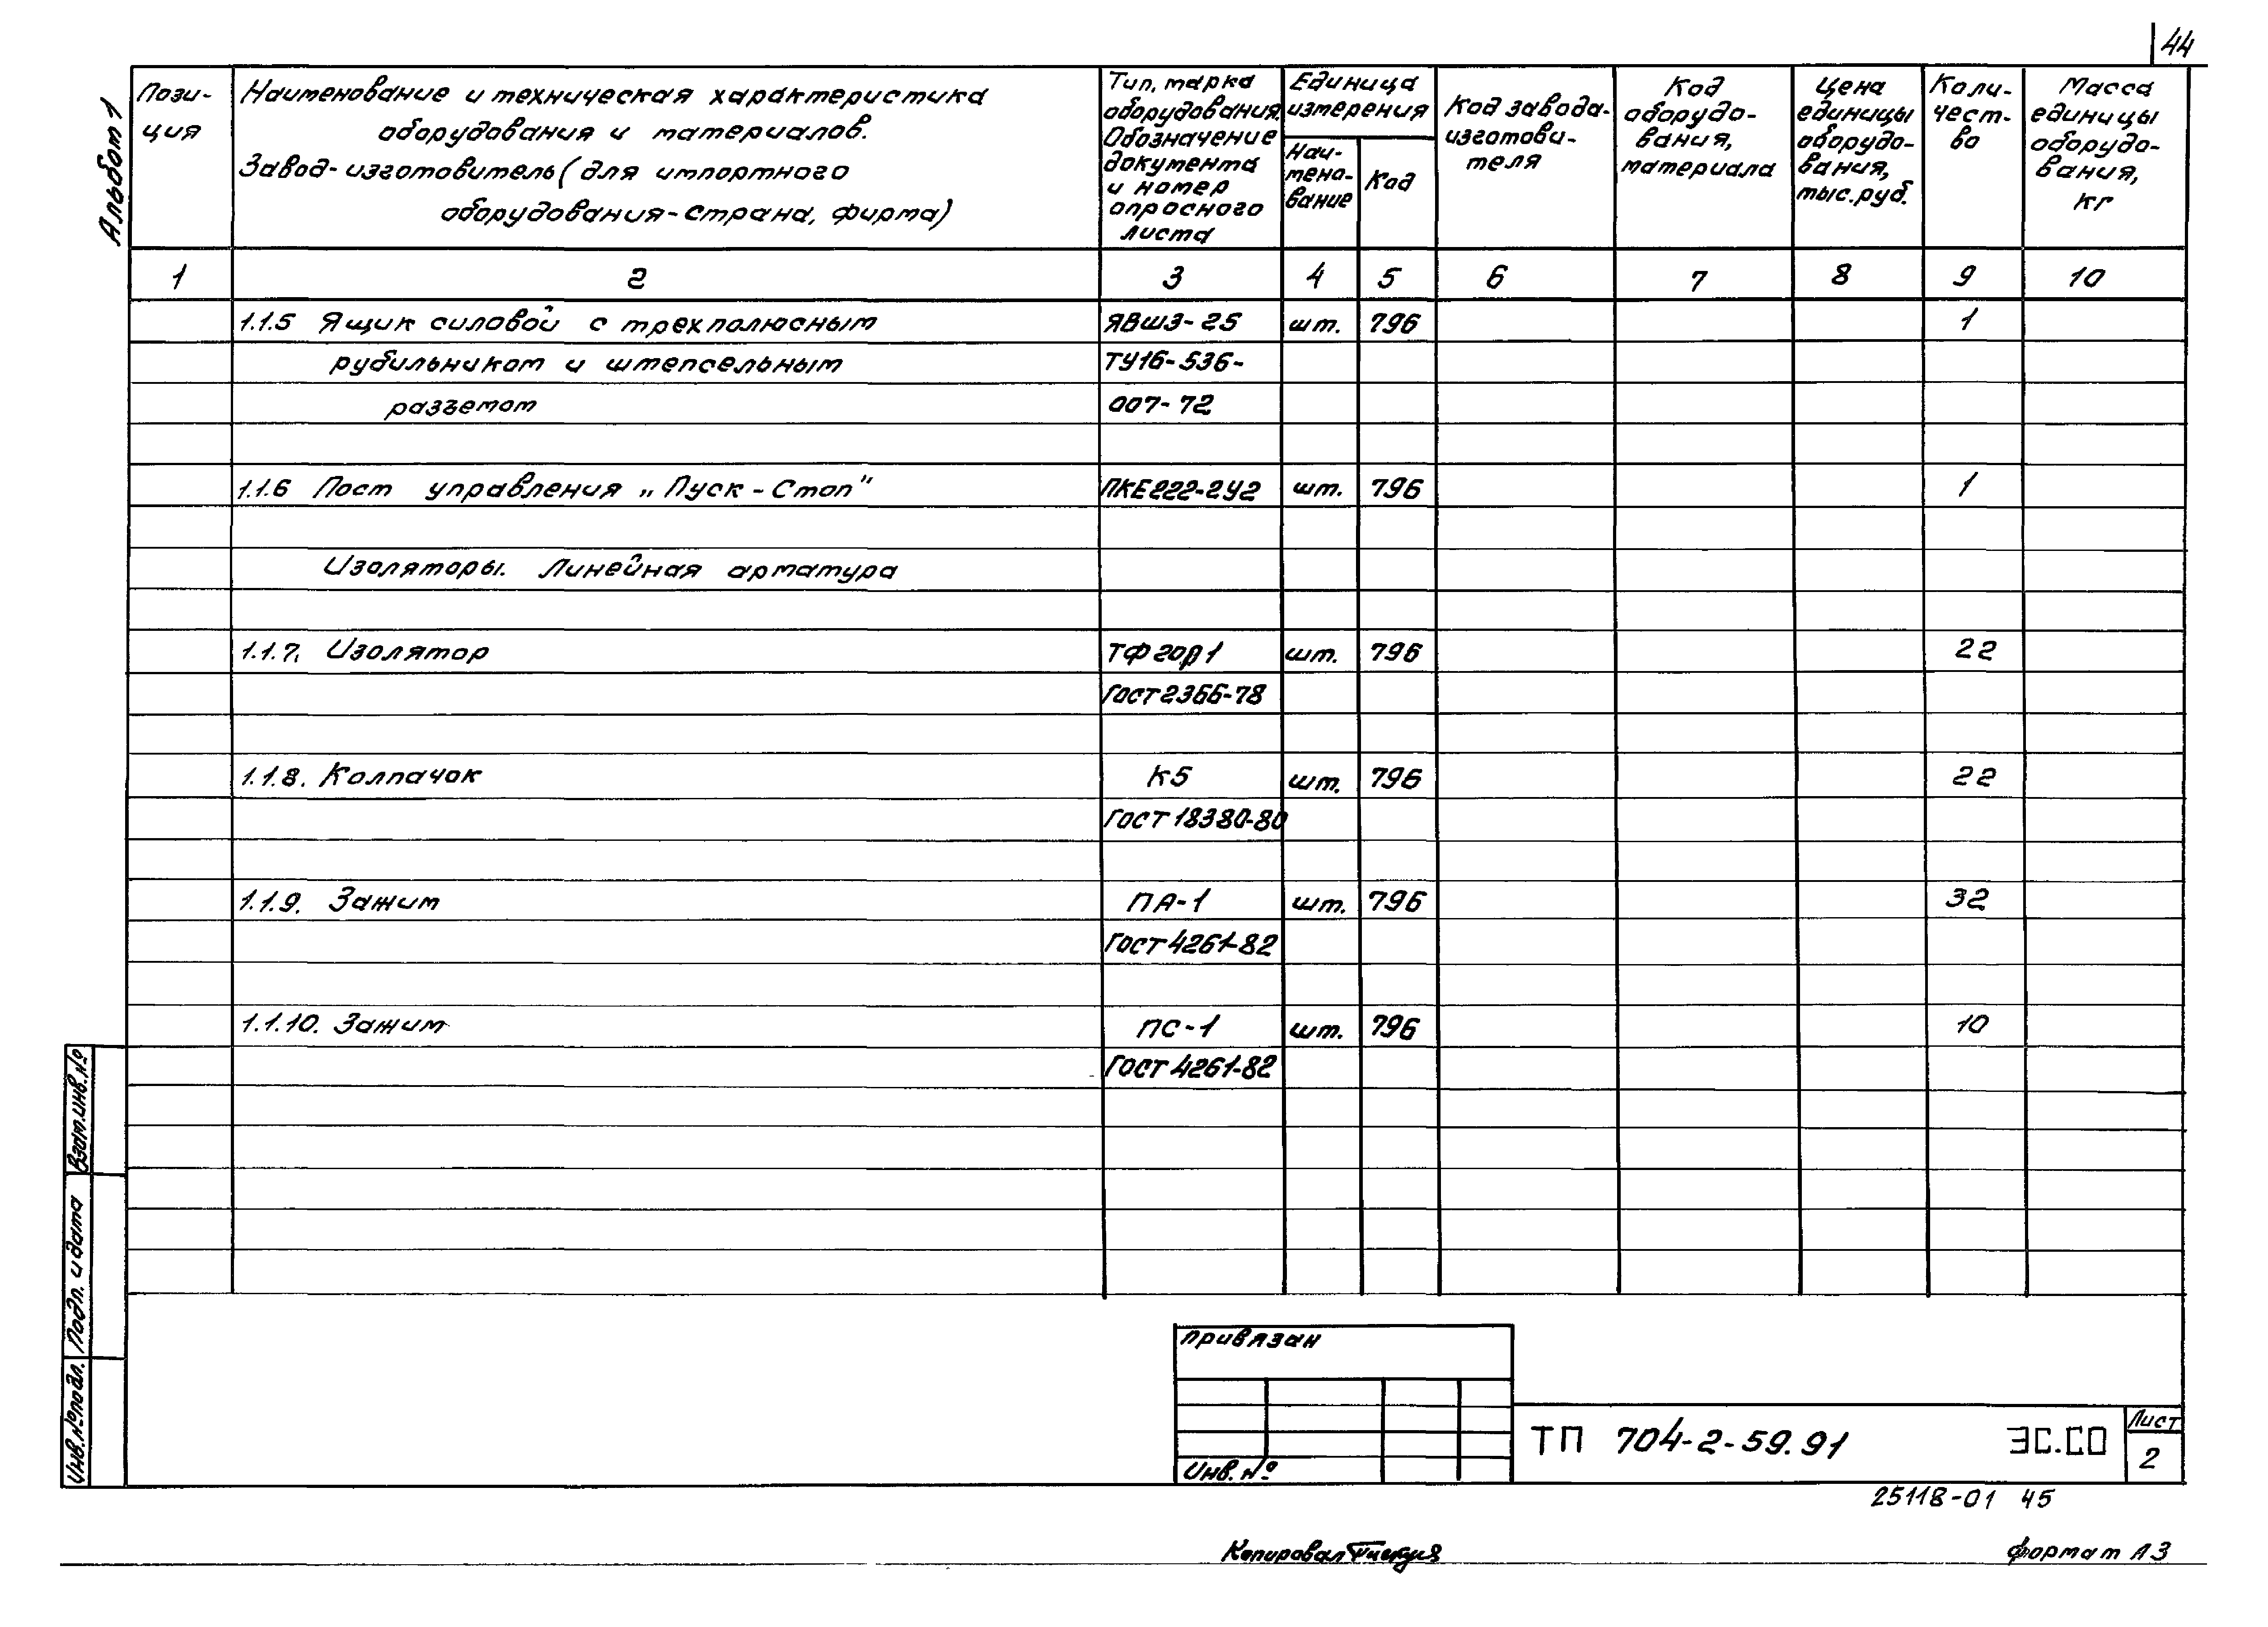 44
Альбом 1
Пози-
ция
Наименование и техническая характеристика
оборудования и материалов.
Завод-изготовитель (для импортного
оборудования-страна, фирма)
Тип, марка
оборудования.
Обозначение
документа
и номер
опросного
листа
Единица
измерения
Наи-
мено-
вание
Код
Код завода-
изготови-
теля
Код
оборудо-
вания,
материала
Цена
единицы
оборудо-
вания,
тыс.руб.
Коли-
чест-
во
Масса
единицы
оборудо-
вания,
кг
1 2 3 4 5 6 7 8 9 10
1.1.5 Ящик силовой с трехполюсным ЯВШЗ-25 шт. 796 1
рубильником и штепсельным ТУ16-536-
разъемом 007-72
1.1.6 Пост управления „Пуск-Стоп" ПКЕ222-2У2 шт. 796 1
Изоляторы. Линейная арматура
1.1.7. Изолятор ТФ20р1 шт. 796 22
ГОСТ 2366-78
1.1.8. Колпачок К5 шт. 796 22
ГОСТ 18380-80
1.1.9. Зажим ПА-1 шт. 796 32
ГОСТ 4261-82
1.1.10. Зажим ПС-1 шт. 796 10
ГОСТ 4261-82
Взам.инв.№
Подп. и дата
Инв.№подл.
Привязан
Инв.№
ТП 704-2-59.91 ЭС.СО
Лист
2
25118-01 45
Копировал
формат А3